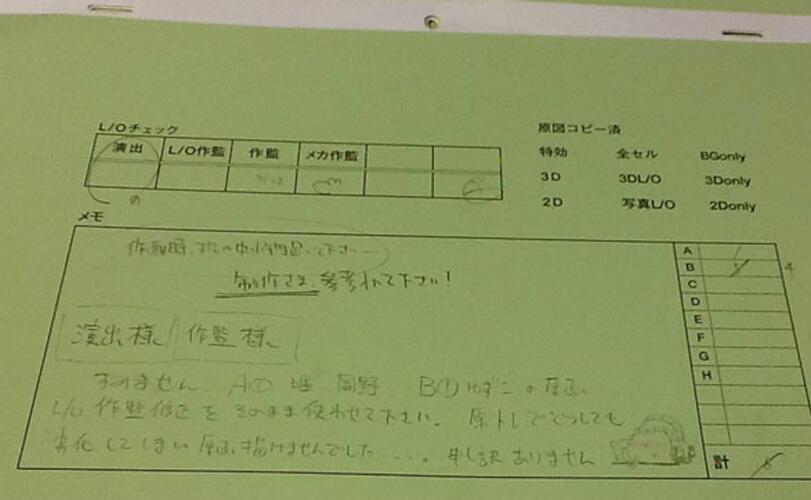 L/Oチェック
演出 L/O作監 作監 メカ作監
原図コピー済
特効 全セル BGonly
3D 3DL/O 3Donly
2D 写真L/O 2Donly
メモ
下さい
制作さま、参考入れて下さい!
演出様 作監様
すみません、A① 堀 岡野 B① ゆずこの原画、
L/O作監修正をそのまま使わせて下さい。原トレでどうしても
劣化してしまい原画描けませんでした・・・。申し訳ありません
A
B
C
D
E
F
G
H
計